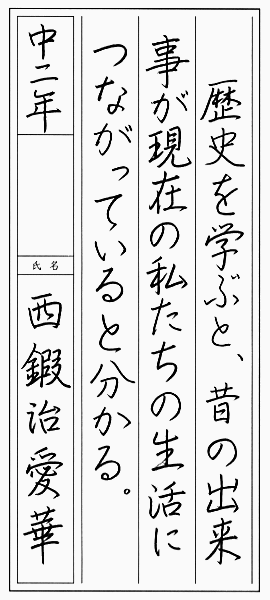 歴史を学ぶと、昔の出来
事が現在の私たちの生活に
つながっていると分かる。
中二年
氏名
西鍜治愛華